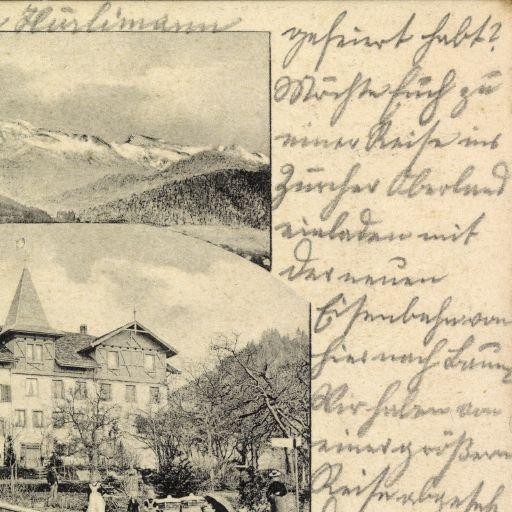 Hürlimann
gefeiert habt?
Möchte Euch zu
einer Reise ins
Zürcher Oberland
einladen mit
der neuen
Eisenbahn von
hier nach Bäum
Wir haben von
einer größern
Reise abgeseh